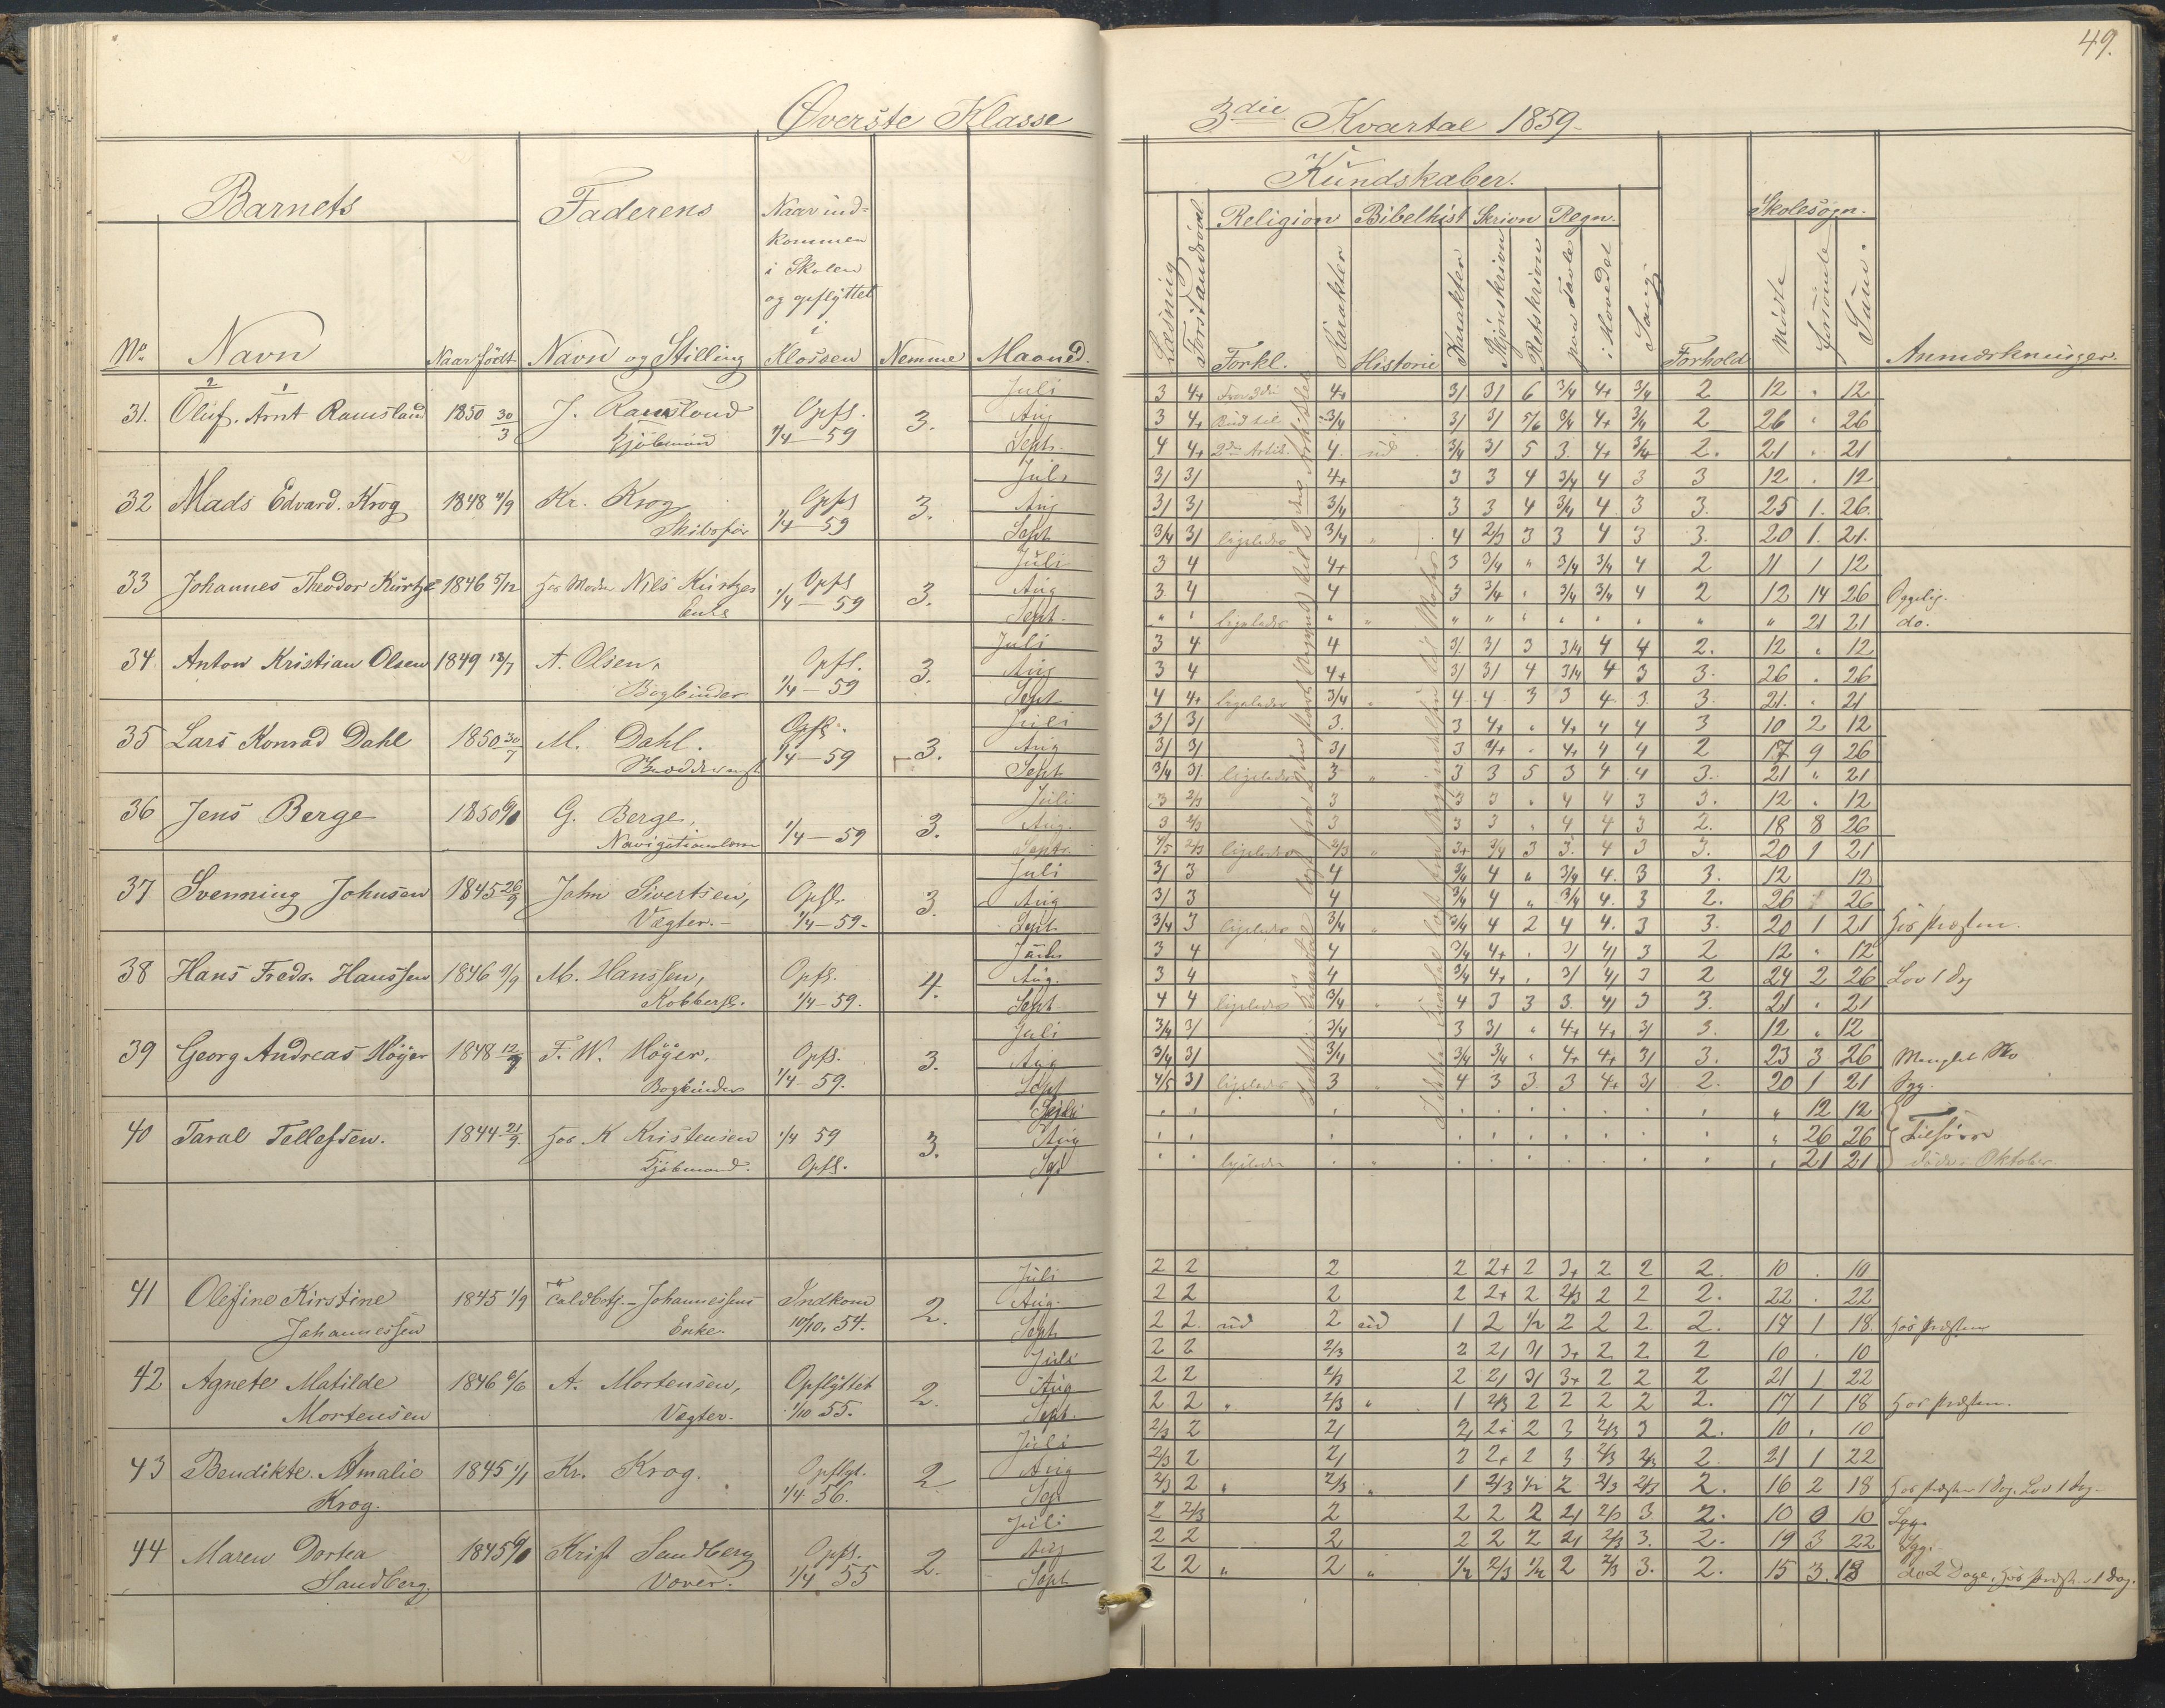 49.
Øverste Klasse
3die Kvartal 1859
Barnets
Faderens
Naar ind-
kommen
i Skolen
og opflyttet
i
Klassen
No
Navn
Naar født
Navn og Stilling
Nemme
Maaned.
Kundskaber.
Læsning
Forstandsøvel
Religion
Bibelhist
Skrivn
Regn.
Forkl.
Karakter
Historie
Karakter
Skjönskrivn
Retskrivn
paa Tavle
i Hovedet
Sang
Forhold
Skolesøgn.
Mödte
Forsömte
Sum.
Anmærkninger.
31. Oluf. Arnt Ramsland 1850 30/3 J. Ramsland Opfl. 3. Juli 3 4+ 4+ 3/ 3/ 6 3/4 4+ 3/4 2 12 " 12
Kjöbmand 1/4—59 Aug 3 4+ Bud til 3/4 3/ 3/ 5/6 3/4 4+ 3/4 2 26 " 26
Sept. 4 4+ 2den Artik. 4. ud 3/4 3/ 5 3. 4+ 3/4 2. 21 " 21
32 Mads Edvard. Krog 1848 4/9 Kr. Krog Opfl 3. Juli 3/ 3/ 4+ 3 3 4 3/4 4 3 3 12 . 12
Skibsför 1/4—59 Aug 3/ 3/ 3/4 3 3 4 3/4 4 3 3. 25 1. 26.
Sept 3/4 3/ ligeledes 3/4 " 4 2/3 3 3 4 3 3. 20 1. 21.
33 Johannes Theodor Kurtze 1846 5/12 hos Moder Nils Kurtzes Opfl 3. Juli 3 4 4+ 3 3/4 " 3/4 3/4 4 2 11 1 12
Enke 1/4—59 Aug 3 4 4 3 3/4 " 3/4 3/4 4 2 12 14 26
Sept. " " ligeledes " " " " " " " " " " 21 21 do.
34. Anton Kristian Olsen 1849 18/7 A. Olsen, Opfl. 3. Juli 3 4 4 3/ 3/ 3 3/4 4 4 2. 12 " 12
Bogbinder 1/4—59 Aug 3 4 4+ 3/ 3/ 4 3/4 4 3 3. 26 . 26
Sept 4 4+ ligeledes 3/4 " 4 4 3 3 4 3. 3. 21. . 21
35 Lars Konrad Dahl 1850 30/7 M. Dahl. Opfl. 3. Juli 3/ 3/ 3. 3 4+ " 4+ 4 4 3 10 2 12
1/4—59 Aug 3/ 3/ 3/ 3 4+ " 4+ 4 4 2 17 9 26
Sept 3/4 3/ ligeledes 3 " 3 3 5 3 4 4 3. 21 " 21
36 Jens Berge 1850 G. Berge, 3. Juli 3 2/3 3 3 3 " 4 4 3 3. 12 . 12
Navigationslærer 1/4—59 Aug. 3 2/3 3 3 3 " 4 4 3 2. 18 8 26
Septr. 4/5 2/3 ligeledes 2/3 " 3+ 3/4 3 3. 4 3 3. 20 1 21
37 Svenning Johnsen 1845 26/9 John Sivertsen, Opfl. 3. Juli 3/ 3 4 3/4 4 " 3/4 4. 3 3. 12 12
Vægter.— 1/4—59- Aug 3/ 3 4 3/4 4 " 3/4 4. 3 2. 26 26
Sept. 3/4 3 ligeledes 3/4 " 3/4 4 2 4 4. 3 3. 20 1 21 hos Præsten.
38 Hans Fredr. Hanssen 1846 9/9 M. Hanssen, Opfl. 4. Juli 3 4 4 3/4 4+ . 3/ 4/ 3 2 12 " 12
Kobbersl. 1/4—59. Aug. 3 4 4 3/4 4+ . 3/ 4/ 3 2 24 2 26 Lov 1 Dag
Sept 4 4 ligeledes 3/4 " 4 3 3 3 4/ 3 3. 21 . 21
39 Georg Andreas Höyer 1848 12/9 F. W. Höyer. Opfl. 3. Juli 3/4 3/ 3/4 3 3/ " 4+ 4+ 3/ 3. 12 " 12
Bogbinder 1/4—59. Aug 3/4 3/ 3/4 3/4 3/4 " 4+ 4+ 3/ 3. 23 3 26 Manglet Sko
Sept 4/5 3/ ligeledes 3 4 3 3 3 4+ 3/ 2. 20 1 21 Syg.
40 Taral Tellefsen. 1844 21/9. hos K Kristensen 1/4 59 3. Juli " 12 12
Kjöbmand. Opfl. Aug " 26 26 Tilsöes
Sept ligeledes " " 21 21 döde i Oktober
41 Olefine Kirstine 1845 1/9 Johannessens Indkom 2. Juli 2 2 2 2 2+ 2 3+ 2 2 2. 10 . 10
Johannessen Enke. 10/10. 54. Aug. 2 2 2 2 2+ 2 2/3 2 2 2. 22 . 22
Sept 2 2. ud 2 ud 1 2 1/2 2 2 2. 2. 17 1 18. hos Præsten
42 Agnete Matilde 1846 6/6 A. Mortensen, Opflyttet 2. Juli 2 2 2/3 2 2/ 3/ 3+ 2 2 2 10 . 10
Mortensen Vægter. 1/10 55. Aug 2 2 2/3 2 2/ 3/ 3+ 2 2 2 21 1 22
Sept. 2 2 " 2/3 " 1 2/3 2 2 2 2 2. 17 1 18 hos Præsten.
43 Bendikte. Amalie 1845 1/1 Kr. Krog. Opflyt. 2 Juli 2/3 2 2/ 2/ 2+ 2 3 2/3 3 2. 10 . 10
Krog. 1/4 56. Aug 2/3 2 2/ 2 2+ 2 3 2/3 2/3 2 21 1 22
Sept 2/3 2 " 2/3 " 1 2/3 1/2 2 2/3 2/3 2. 16 2 18 hos Præsten 1 Dag, Lov 1 Dag—
44 Maren Dortea 1845 Krist Sandberg Opfl. 2. Juli 2 2/3 2 2 2 2 2/ 2/3 3. 2. 10 0 10 Syg.
Sandberg. Væver. 1/4 55 Aug 2 2 2 2 2 2 2/ 2/3 3. 2. 19 3 22 Syg.
Sept 2 2 " 2 " 1/2 2/3 1/2 2 2/3 3. 2. 15 3. 18 do 2 Dage, hos Præsten 1 Dag.